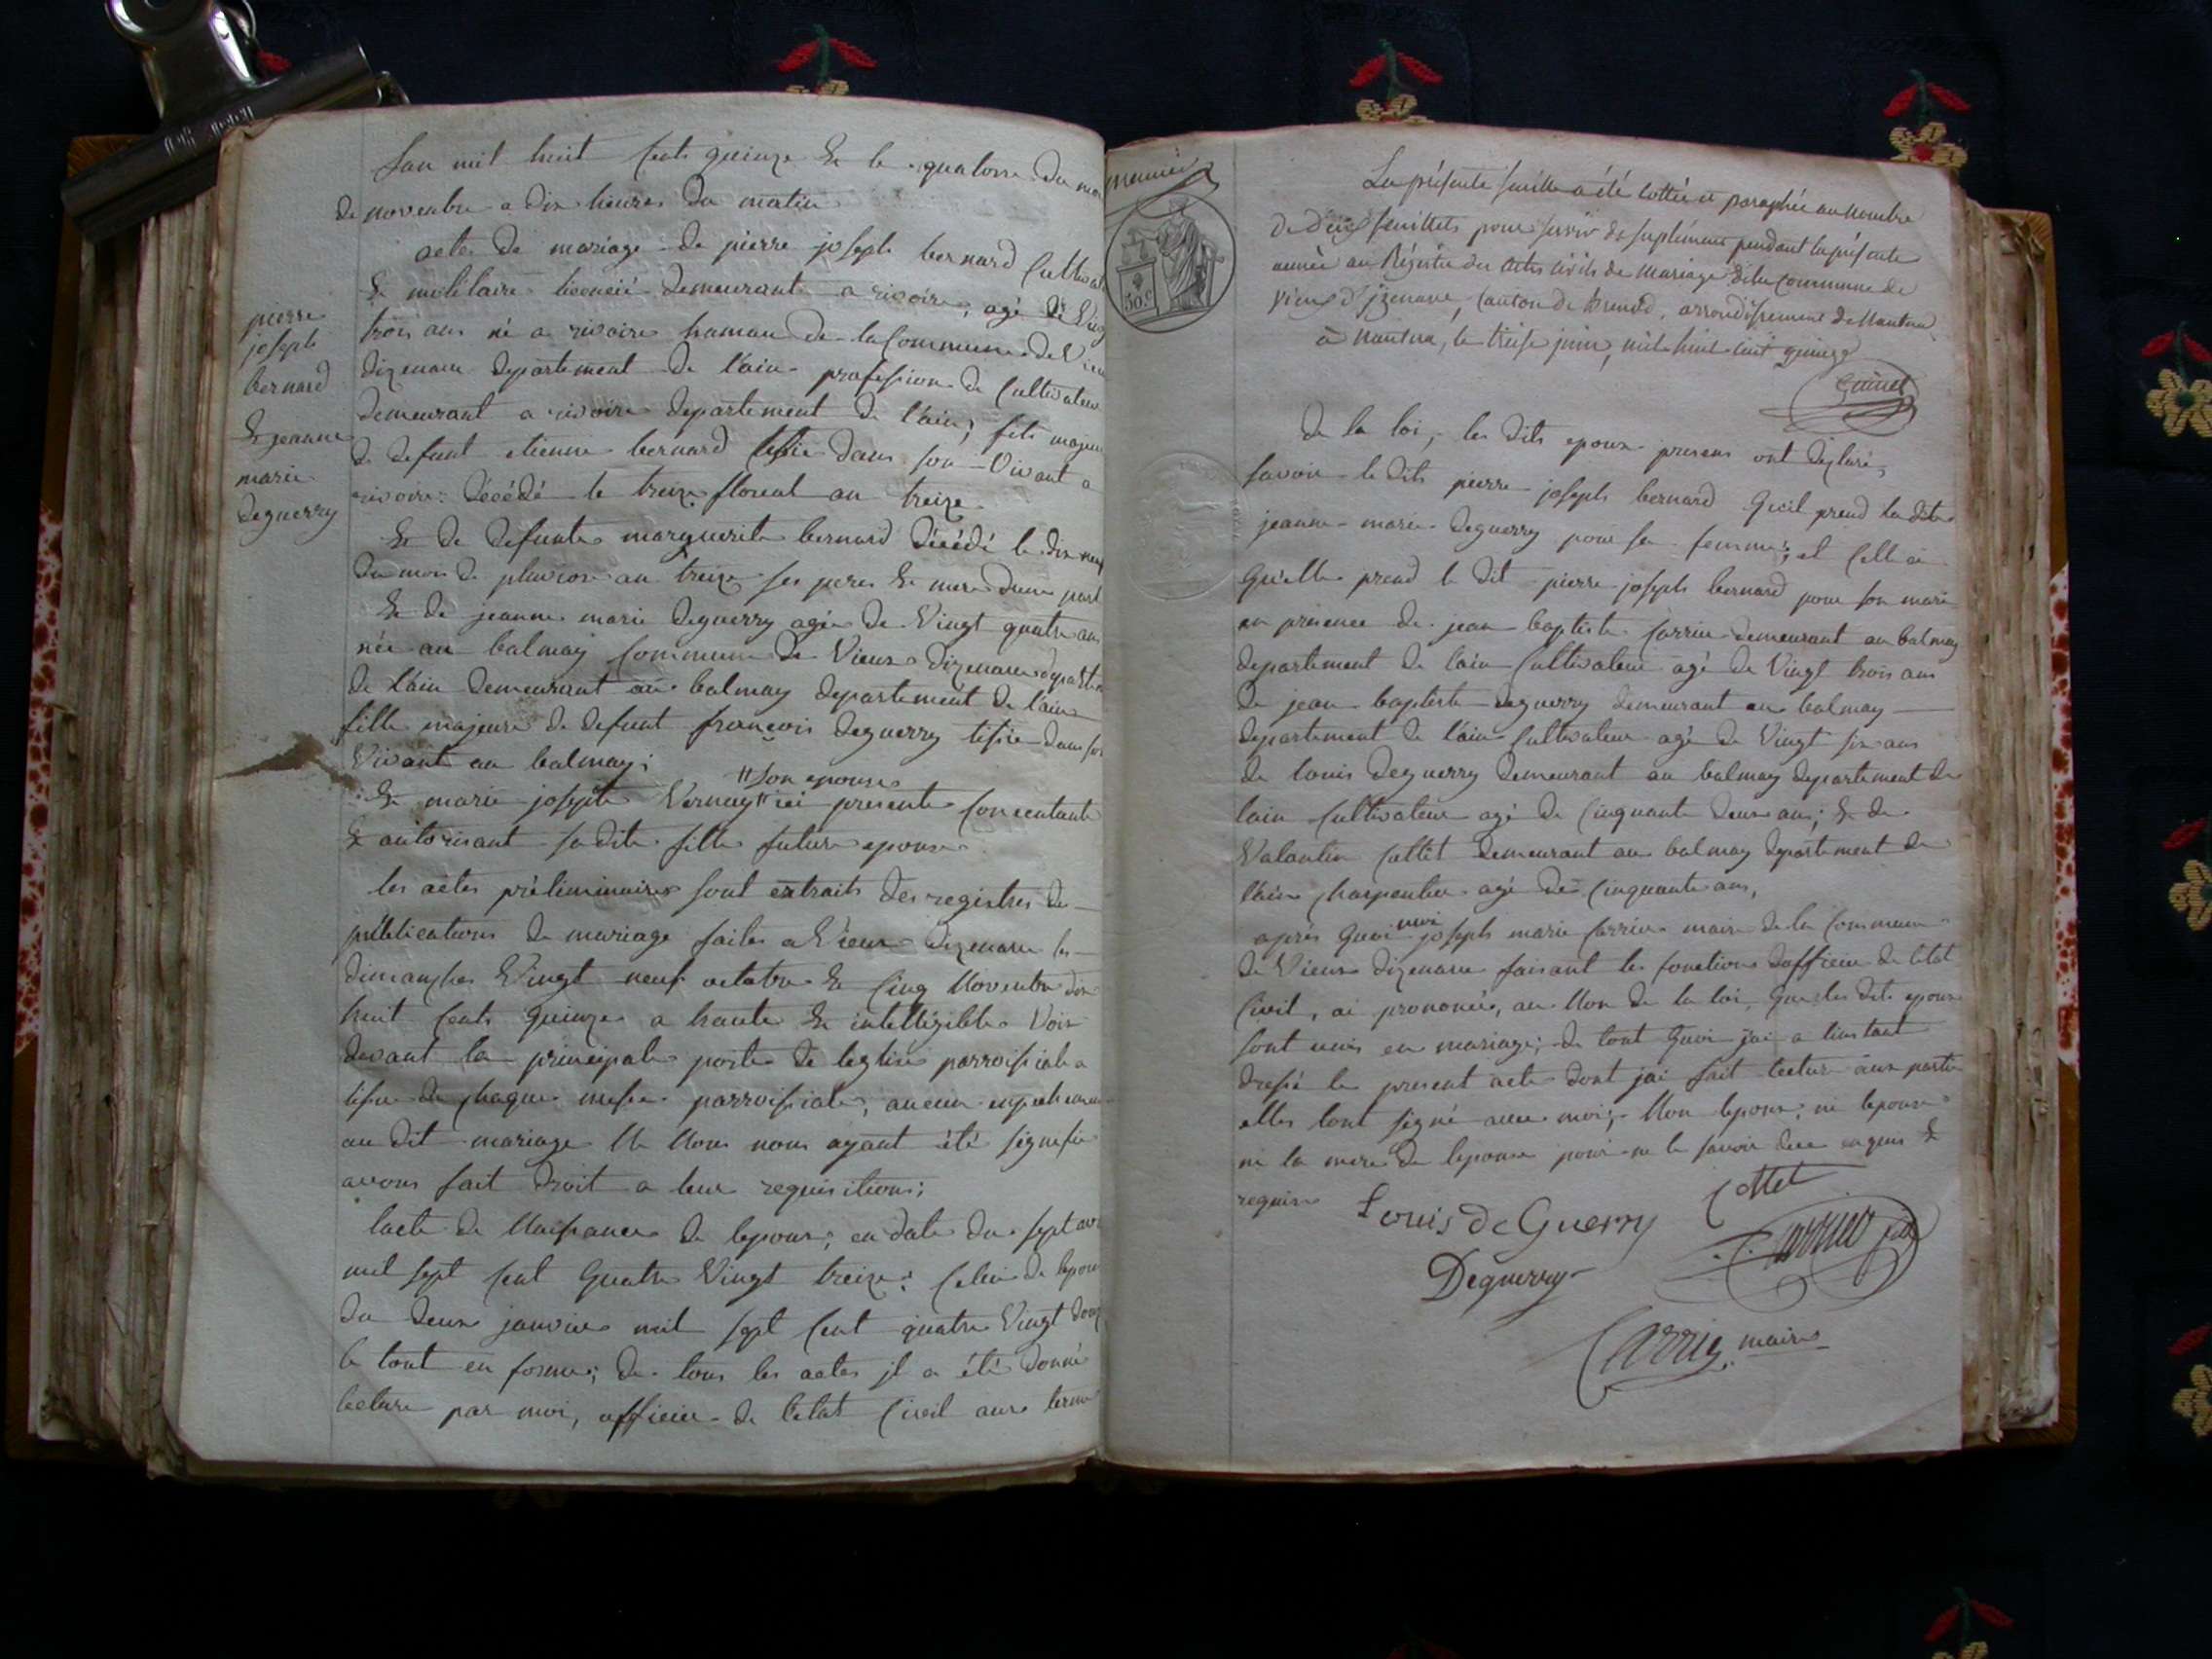 lan mil huit cents quinze & le quatorze du moi
de novembre a dix heures du matin
acte de mariage de pierre joseph bernard Cultivat
& militaire licencié demeurant a rivoire, agé de Ving
trois ans né a rivoire hamau de la Commune de Vieu
dizenave departement de lain profession de Cultivateur
demeurant a rivoire departement de lain; fils majeur
de defunt etienne bernard dans son Vivant a
rivoire: décédé le treize floreal an treize
& de defunte marguerite bernard décédé le dix neuf
du mois de pluviose an treize ses peres & mere dune part
& de jeanne marie deguerry agée de Vingt quatre ans
née au balmay Commune de Vieux dizenave departem
de lain demeurant au balmay departement de lain
fille majeure de defunt françois deguerry tissié dans son
Vivant au balmay;
"son epouse
& marie josephte Vernay" ici presente Consentante
& autorisant sa dite fille future epouse
les actes préliminaires sont extraits des registres de
publications de mariage faites a Vieux dizenave les
dimanches Vingt neuf octobre & Cinq Novembre dix
huit Cents Quinze a haute & intelligible Voix
devant la principale porte de leglise parroissiale a
lissue de chaque messe parroissiale, aucun empechement
au dit mariage Ne Nous nous ayant été signifié
avons fait droit a leur requisitions;
lacte de Naissance de lepoux, en date du sept avr
mil sept Cent Quatre Vingt treize: Celui de lepou
du deux janvier mil sept Cent quatre Vingt douz
le tout en forme; de tous les actes jl a été donné
lecture par moi, officier de letat Civil aux terme
pierre
joseph
bernard
& jeanne
marie
deguerry
premier
50.c
La présente feuille a été cottée et paraphée au nombre
de deux feuillets pour servir de suplément pendant la présente
année au Régistre des actes civils de mariage de la commune de
Vieux d'jzenave, Canton de Brenod, arrondissement de Nantua
à Nantua, le treise juin, mil huit cent quinze
de la loi, les dits epoux presens ont déclaré,
savoir le dits pierre joseph bernard Quil prend la dite
jeanne marie deguerry pour sa femme; et Celle ci
Quelle prend le dit pierre joseph bernard pour son mari
en présence de jean baptiste Carrier demeurant au balmay
departement de lain Cultivateur agé de Vingt trois ans
de jean baptiste deguerry demeurant au balmay
departement de lain Cultivateur agé de Vingt six ans
de louis deguerry demeurant au balmay departement de
lain Cultivateur agé de Cinquante deux ans; & de
Valantin Cottet demeurant au balmay departement de
lain charpentier agé de Cinquante ans,
après Quoi moi joseph marie Carrier maire de la Commune
de Vieux dizenave faisant les fonctions dofficier de letat
Civil, ai prononcé, au Nom de la loi, Que les dits epoux
sont unis en mariage; de tout Quoi jai a linstant
dressé le present acte dont jai fait lecture aux partie
elles lont signé avec moi; Non lepoux, ni lepouse
ni la mere de lepouse pour ne le savoir de ce enquis &
requise
Louis de Guerry
Cottet
Deguerry
Carrier
Carrier, maire